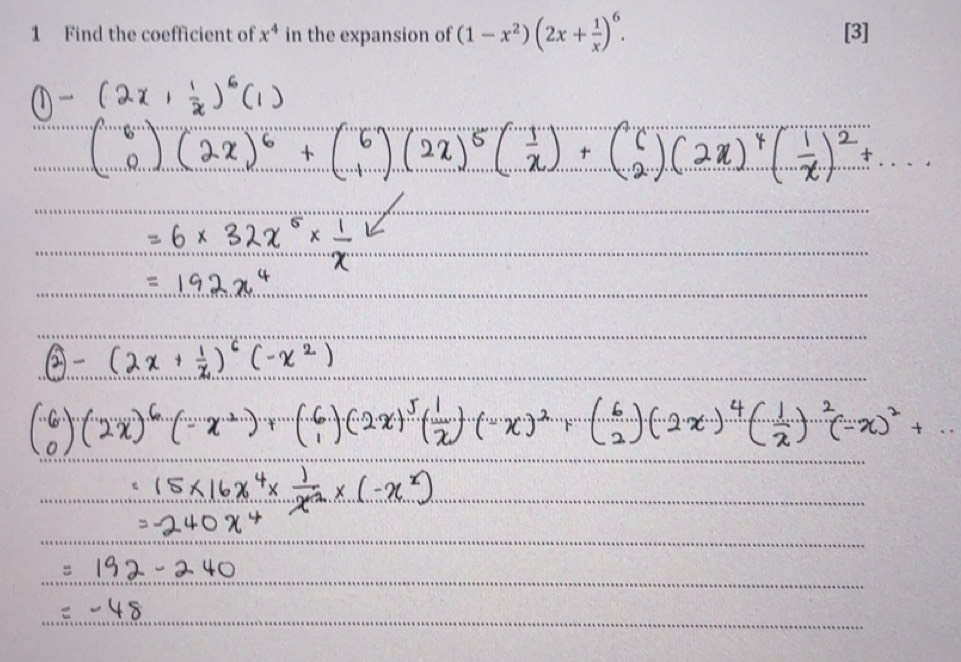 1 Find the coefficient of x⁴ in the expansion of (1 − x²)(2x + 1/x)⁶. [3]
① - (2x + 1/x)⁶(1)
(6 0)(2x)⁶ + (6 1)(2x)⁵(1/x) + (6 2)(2x)⁴(1/x)² + ....
= 6 × 32x⁵ × 1/x ↙
= 192x⁴
② - (2x + 1/x)⁶(-x²)
(6 0)(2x)⁶(-x²) + (6 1)(2x)⁵(1/x)(-x)² + (6 2)(2x)⁴(1/x)²(-x)² + ..
= 15×16x⁴ × 1/x² × (-x²)
= -240x⁴
= 192 - 240
= -48